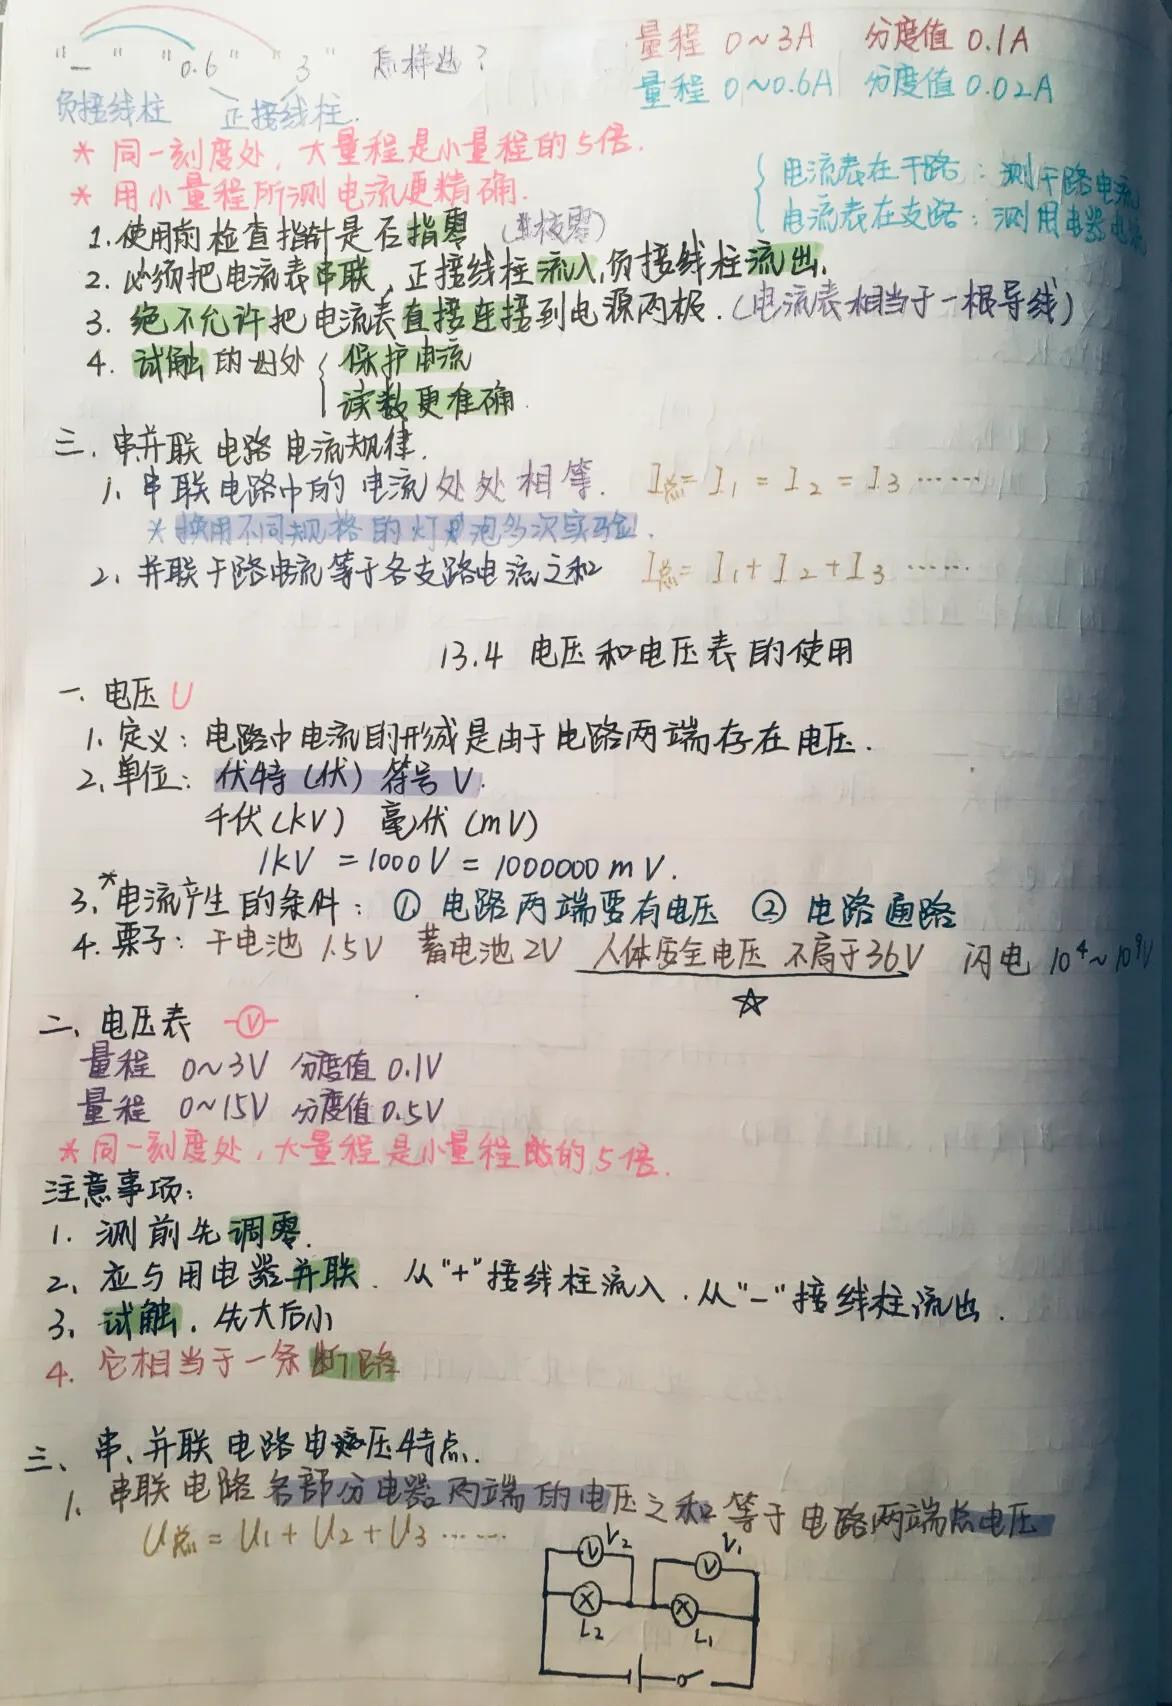 "—" "0.6" "3" 怎样选？
负接线柱 正接线柱.
量程 0~3A 分度值 0.1A
量程 0~0.6A 分度值 0.02A
* 同一刻度处，大量程是小量程的5倍.
* 用小量程所测电流更精确.
电流表在干路：测干路电流
电流表在支路：测用电器电流
1.使用前检查指针是否指零 (校零)
2.必须把电流表串联，正接线柱流入,负接线柱流出.
3.绝不允许把电流表直接连接到电源两极.(电流表相当于一根导线)
4.试触的好处 保护电流
读数更准确
三、串并联电路电流规律.
1、串联电路中的电流处处相等. I总=I1=I2=I3……
*换用不同规格的灯泡多次实验.
2、并联干路电流等于各支路电流之和 I总=I1+I2+I3……
13.4 电压和电压表的使用
一、电压 U
1、定义：电路中电流的形成是由于电路两端存在电压.
2、单位：伏特(伏) 符号 V.
千伏(kV) 毫伏(mV)
1kV =1000V = 1000000mV.
3、*电流产生的条件：① 电路两端要有电压 ② 电路通路
4.栗子：干电池 1.5V 蓄电池 2V 人体安全电压 不高于36V 闪电 10⁴~10⁹V
☆
二、电压表 V
量程 0~3V 分度值 0.1V
量程 0~15V 分度值 0.5V
*同一刻度处，大量程是小量程的5倍.
注意事项：
1. 测前先调零.
2、应与用电器并联. 从"+"接线柱流入.从"—"接线柱流出.
3、试触.先大后小
4.它相当于一条断路
三、串、并联电路电压特点.
1、串联电路各部分电器两端的电压之和等于电路两端总电压
U总=U1+U2+U3……
V V2 V V1
L2 L1